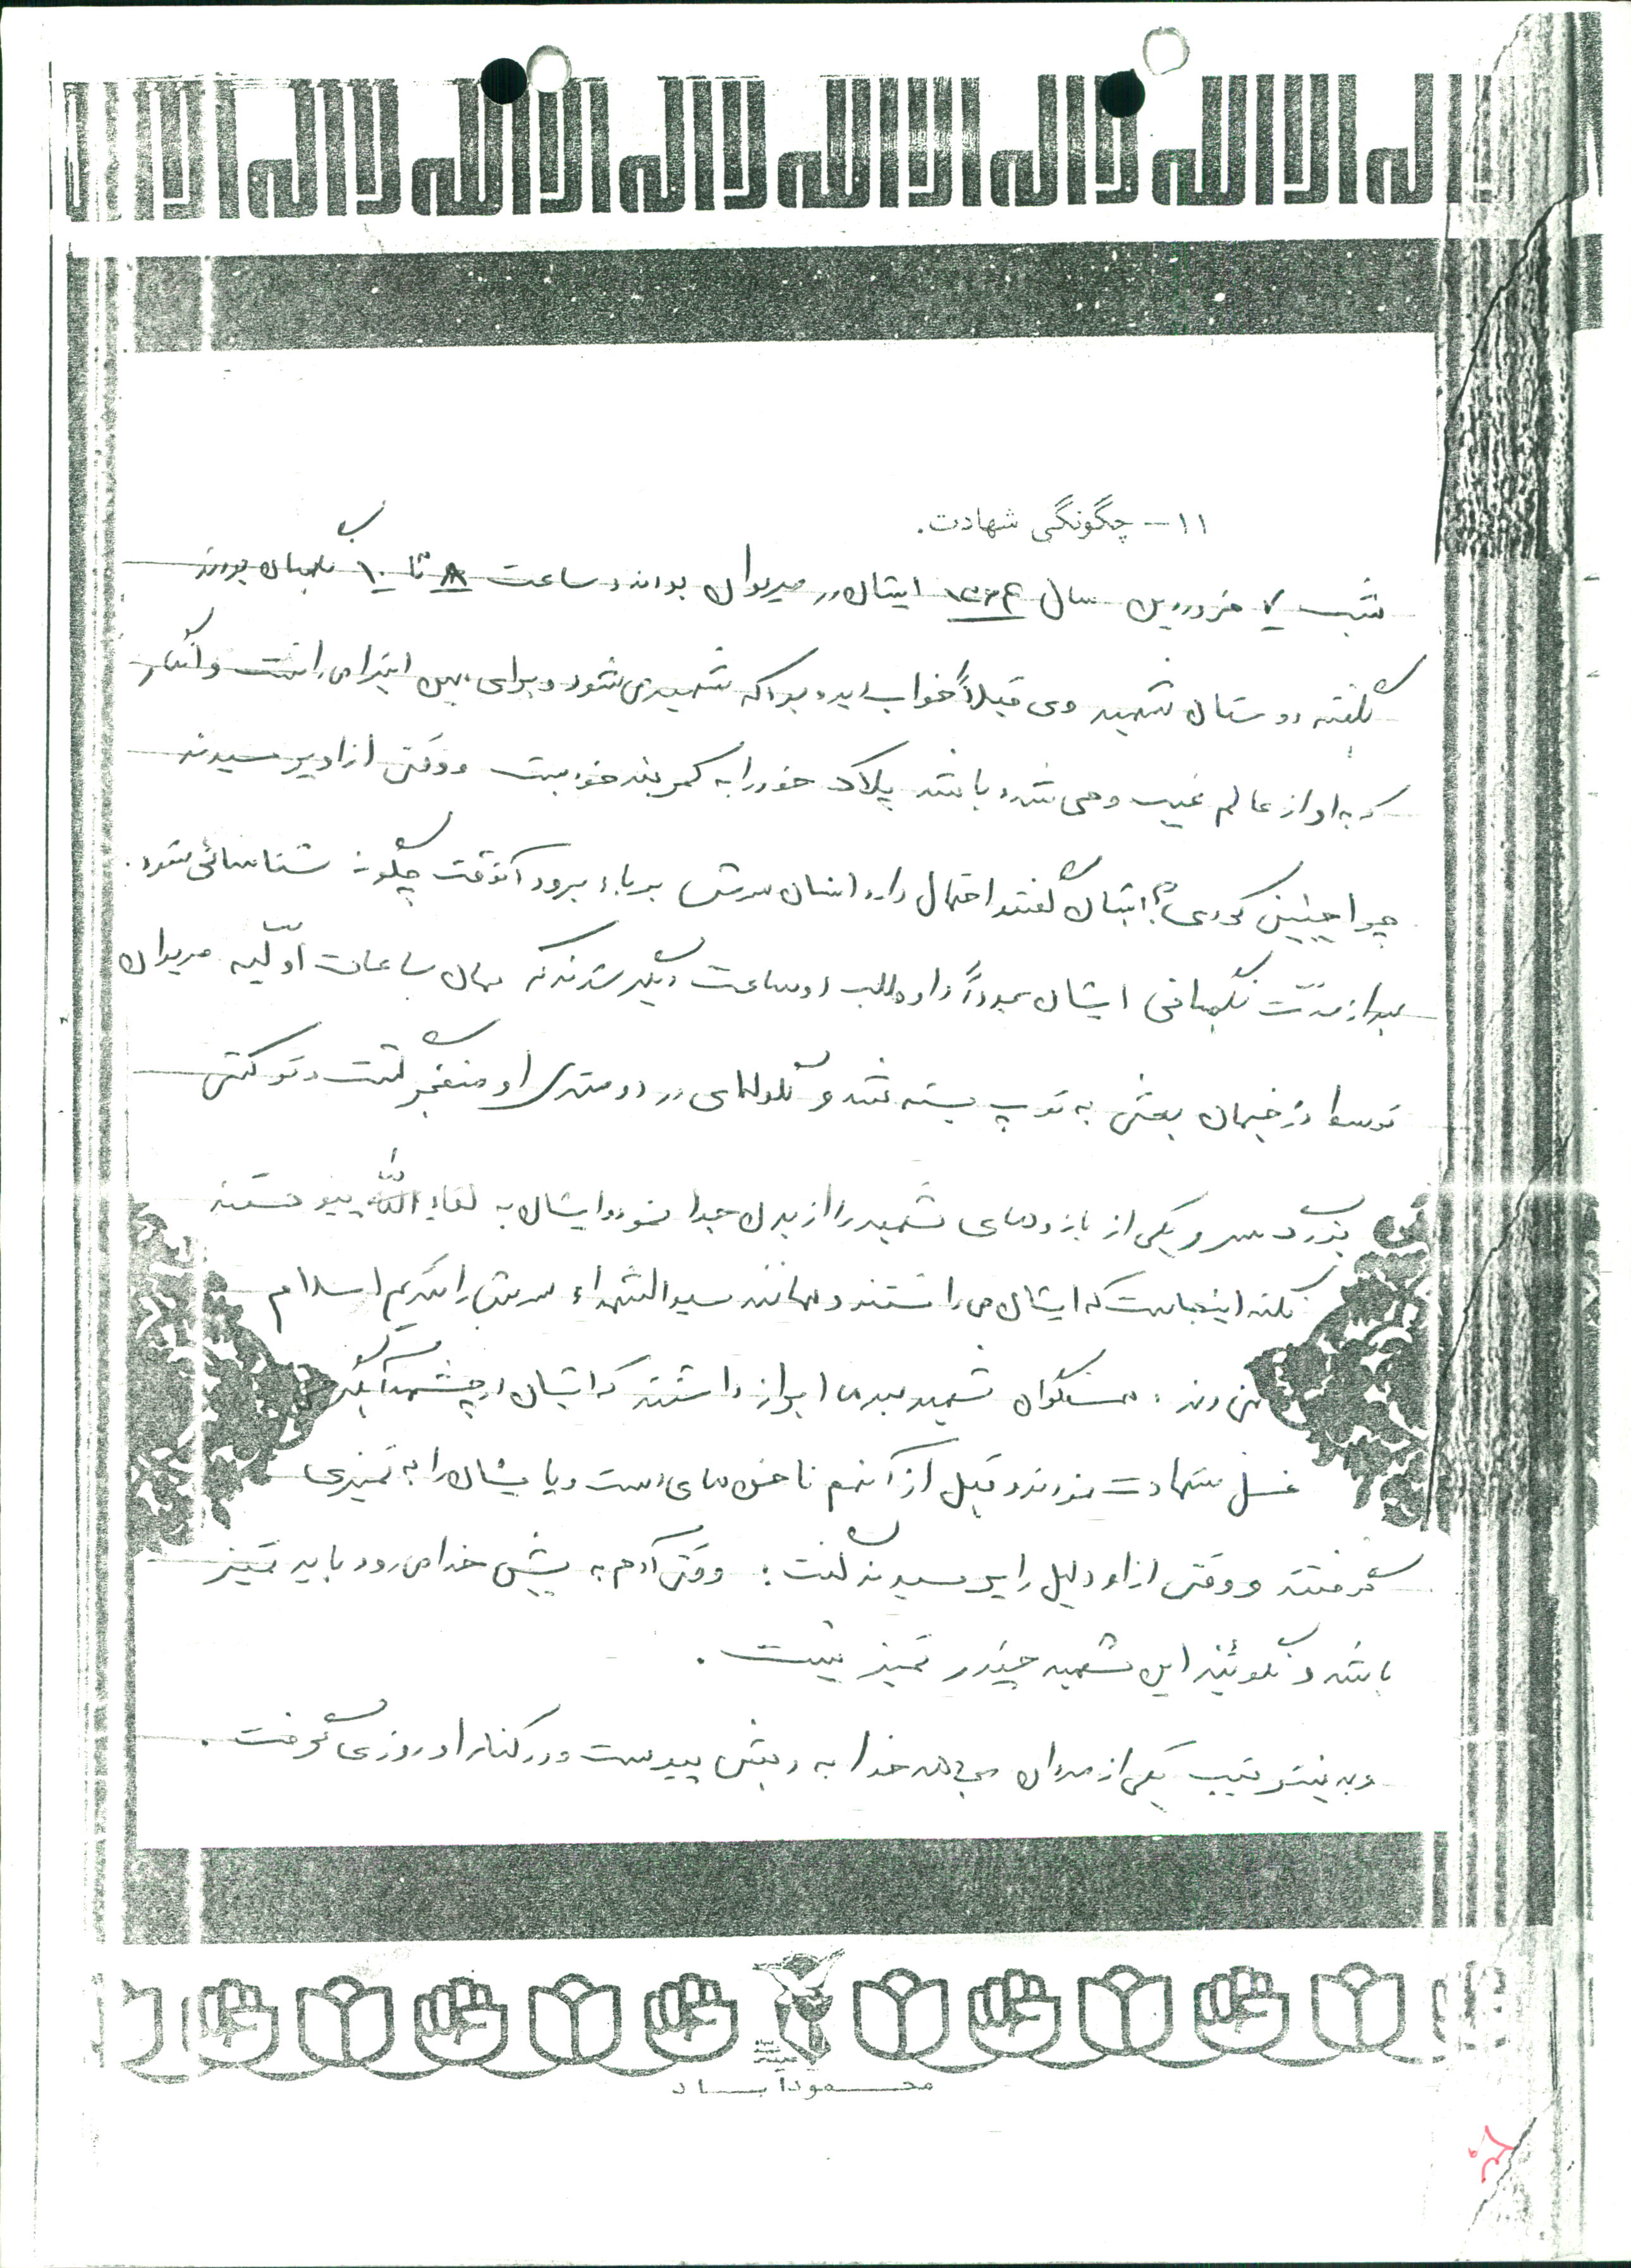 لا اله الا الله لا اله الا الله لا اله الا الله
۱۱- چگونگی شهادت.
شب ۷ فروردین سال ۱۳۶۴ ایشان در مریوان بودند و ساعت ۸ تا ۱۰ نگهبان بودند
بگفته دوستان شهید وی قبلاً خواب دیده بود که شهید می‌شود و برای همین اینرا می‌دانست و انگار
که به او از عالم غیب وحی شده باشد پلاک خود را به کمربند خود بست و وقتی از او پرسیدند
چرا چنین کردی؟ ایشان گفتند احتمال دارد انسان سرش بر باد برود آنوقت چگونه شناسائی شود.
بعد از مدت نگهبانی ایشان مجدداً داوطلب دو ساعت دیگر شدند که همان ساعات اولیه مریوان
توسط دژخیمان بعثی به توپ بسته شد و گلوله‌ای در دو متری او منفجر گشت و ترکش
بزرگ سر و یکی از بازوهای شهید را از بدن جدا نمود و ایشان به لقاء الله پیوستند
نکته اینجاست که ایشان می‌دانستند و همانند سیدالشهداء سرش را تقدیم اسلام
می دند. همسنگران شهید بعدها ابراز داشتند که ایشان در چشمه آبگرم
غسل شهادت نمودند و قبل از آنهم ناخن های دست و پایشان را به تمیزی
گرفتند و وقتی از او دلیل را پرسیدند گفت: وقتی آدم به پیش خدا می‌رود باید تمیز
باشد و نگوئید این شهید چقدر تمیز نیست.
و بدینترتیب یکی از مردان مجاهد خدا به ربش پیوست و در کنار او روزی گرفت.
محمودآباد